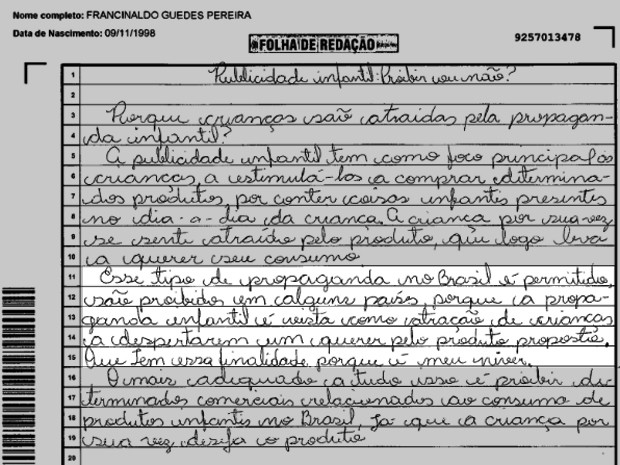 Nome completo: FRANCINALDO GUEDES PEREIRA
Data de Nascimento: 09/11/1998
FOLHA DE REDAÇÃO
9257013478
1 Publicidade infantil: Proibir ou não?
2
3 Porque crianças são atraidas pela propagan-
4 da infantil?
5 A publicidade infantil tem como foco principal, as
6 crianças, a estimulá-los a comprar determina-
7 dos produtos, por conter coisas infantis presentes
8 no dia-a-dia da criança. A criança por sua vez
9 se sente atraído pelo produto, que logo leva
10 a querer seu consumo
11 Esse tipo de propaganda no Brasil é permitido,
12 são proibidos em alguns país, porque a propa-
13 ganda infantil é vista como atração de crianças
14 a despertarem um querer pelo produto proposto.
15 Que tem essa finalidade porque é meu niver.
16 O mais adequado a tudo isso é proibir de
17 terminados comerciais relacionados ao consumo de
18 produtos infantis no Brasil, Ja que a criança por
19 sua vez, deseja o produto
20